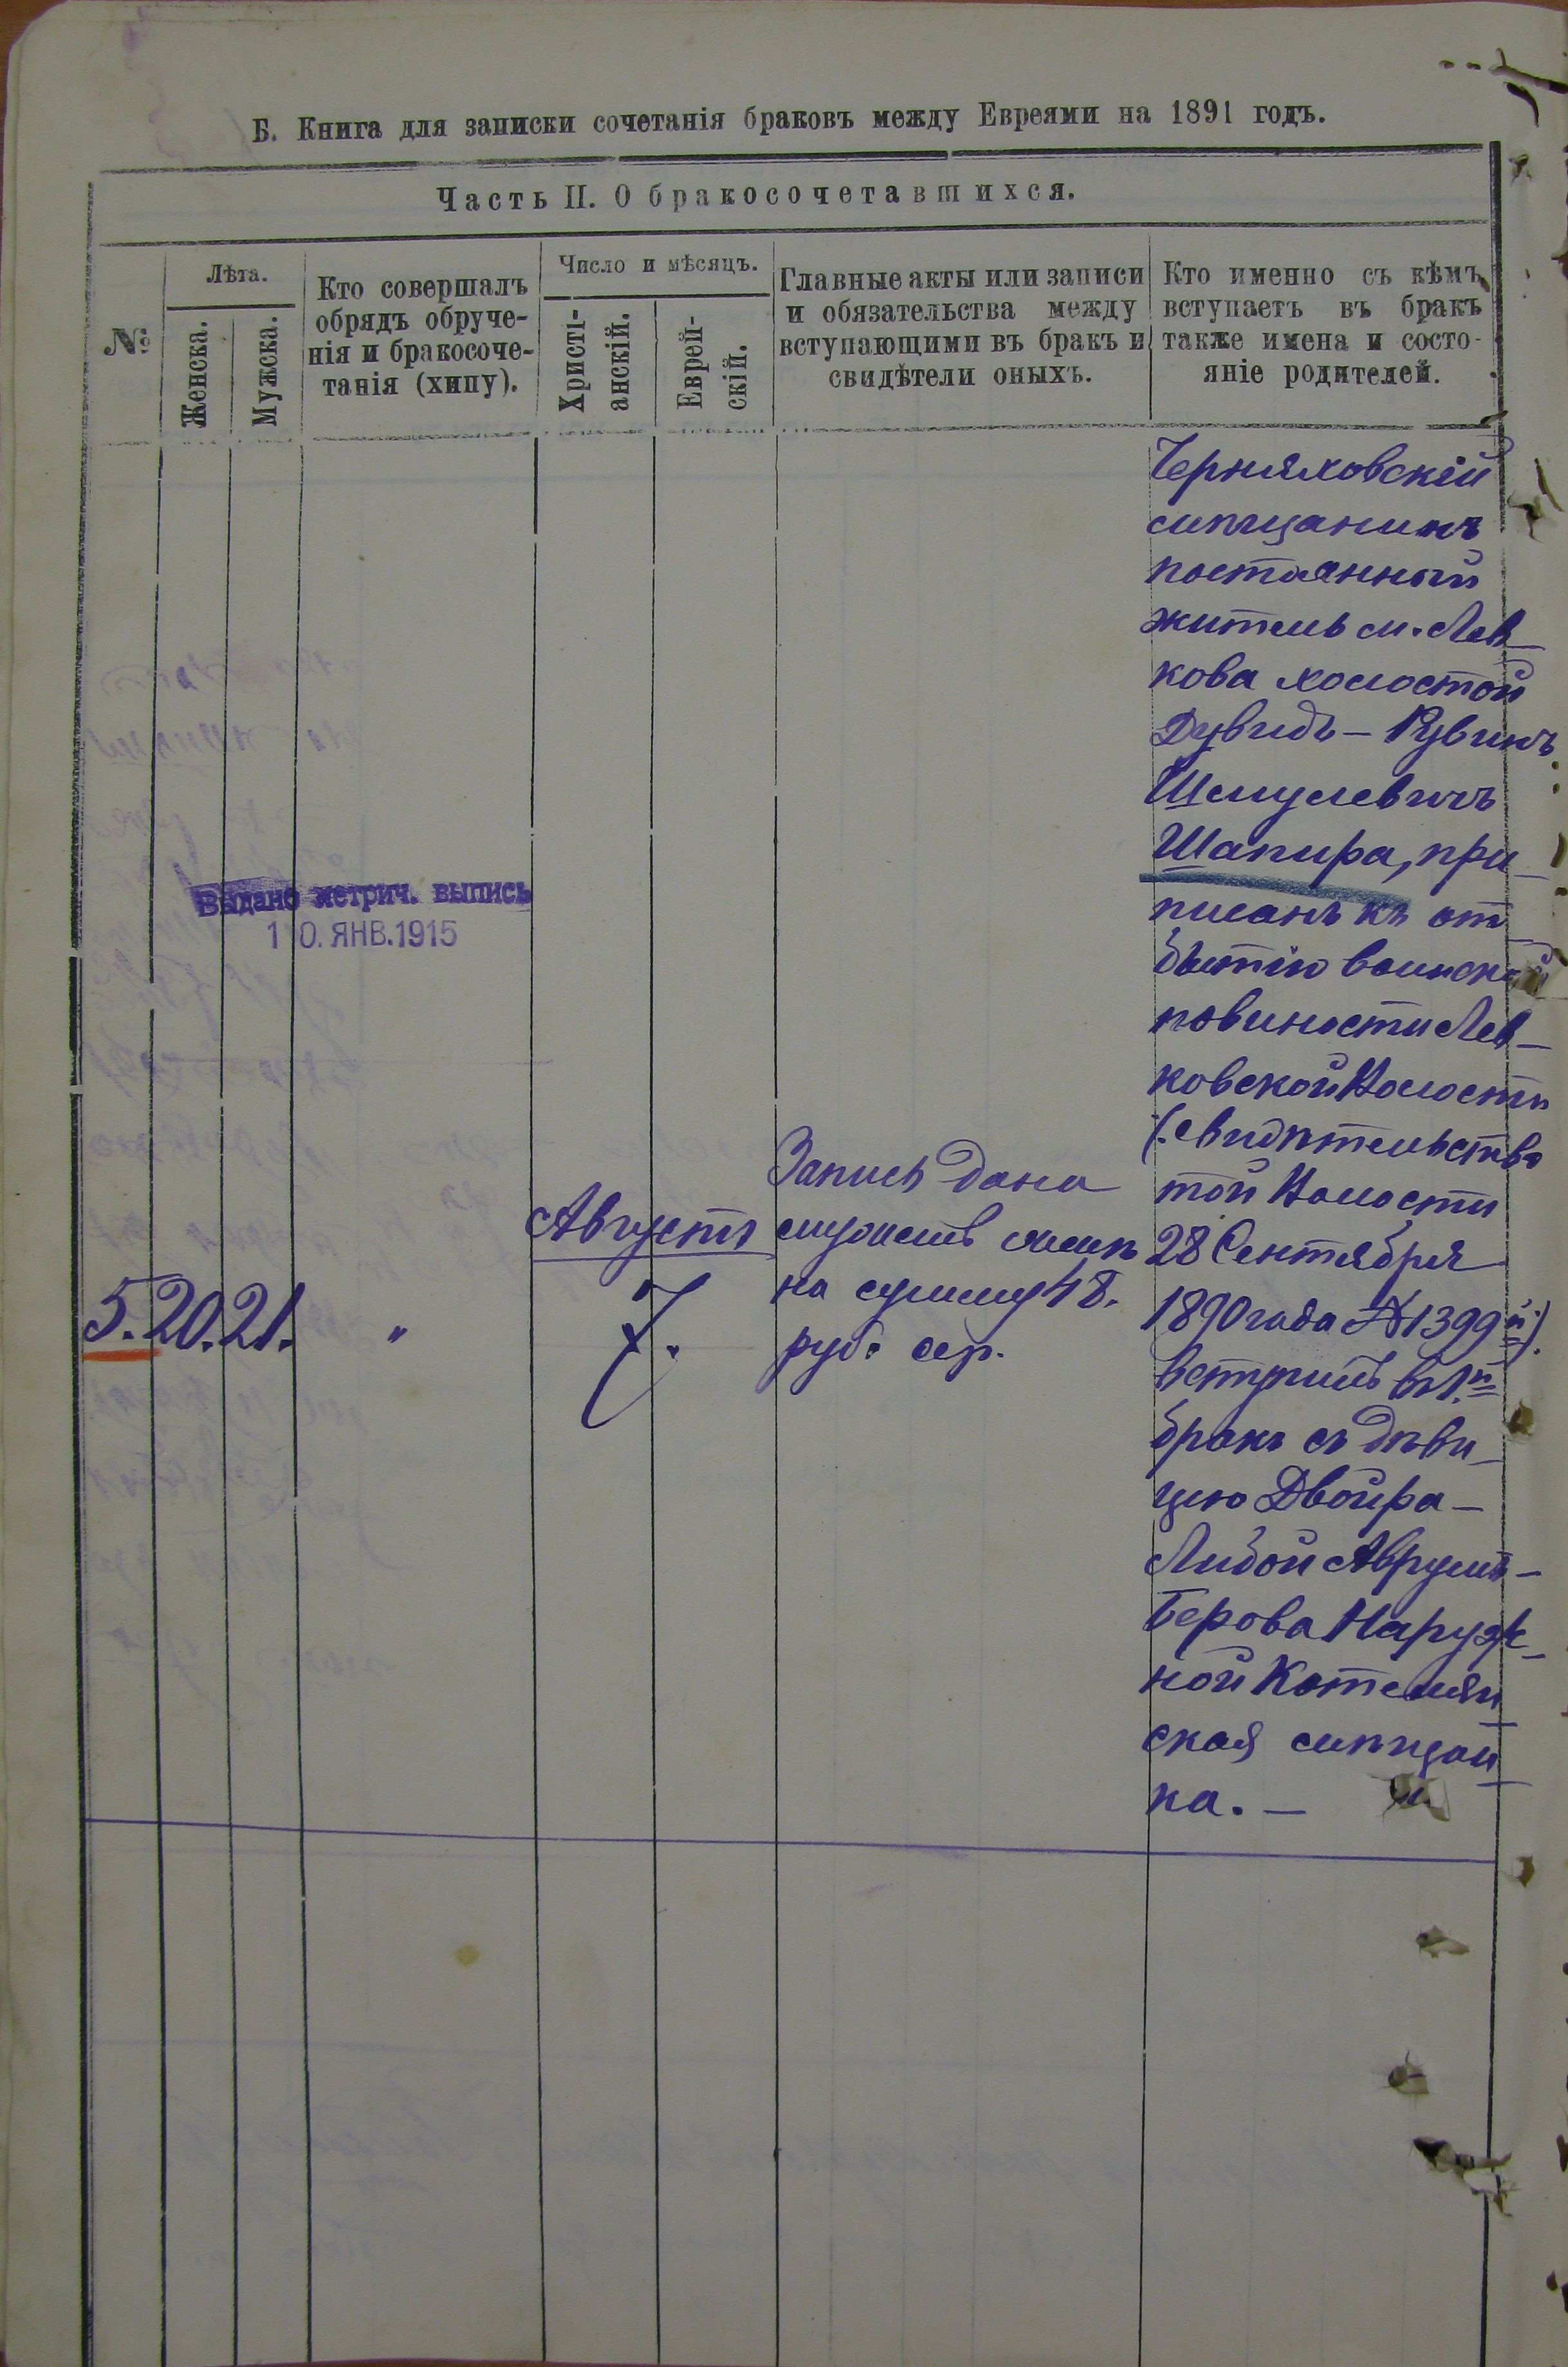 Б. Книга для записки сочетанія браковъ между Евреями на 1891 годъ.
Часть II. О бракосочетавшихся.
№
Лѣта.
Женска.
Мужска.
Кто совершалъ
обрядъ обруче-
нія и бракосоче-
танія (хипу).
Число и мѣсяцъ.
Христі-
анскій.
Еврей-
скій.
Главные акты или записи
и обязательства между
вступающими въ бракъ и
свидѣтели оныхъ.
Кто именно съ кѣмъ
вступаетъ въ бракъ
также имена и состо-
яніе родителей.
Выдано метрич. выпись
10. ЯНВ. 1915
5. 20. 21. "
Августъ
7.
Запись дана
мужемъ женѣ
на сумму 48.
руб. сер.
Черняховскій
мѣщанинъ
постоянный
житель м. Лев-
кова холостой
Дувидъ-Рувинъ
Шмулевичъ
Шапира, при-
писанъ къ от-
бытію воинской
повиности Лев-
ковской Волости
(свидѣтельство
той Волости
28 Сентября
1890 года № 1399й)
вступилъ въ 1й
бракъ съ дѣви-
цею Двойра-
Либой Аврумъ-
Берова Наруж-
ной Котелян-
ская мѣщан-
ка. —